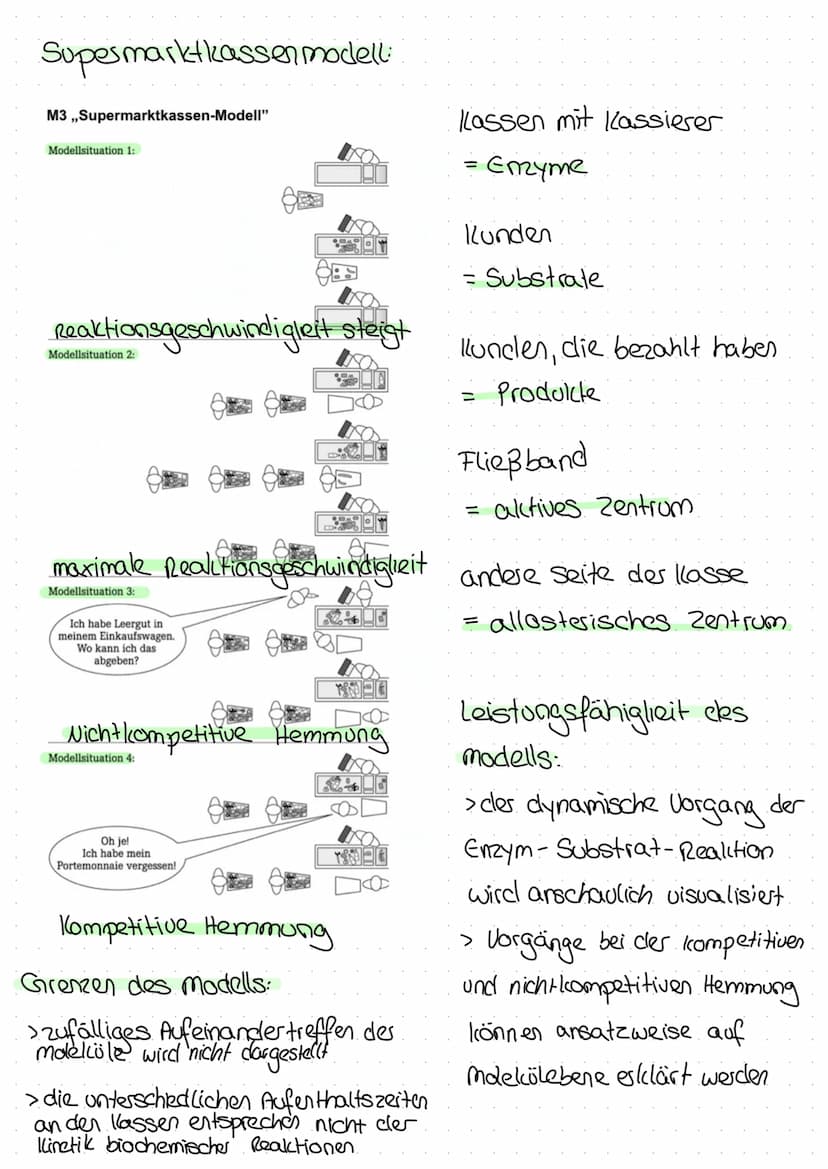 Supermarktkassenmodell:
M3 „Supermarktkassen-Modell”
Modellsituation 1:
Reaktionsgeschwindigkeit steigt
Modellsituation 2:
maximale Reaktionsgeschwindigkeit
Modellsituation 3:
Ich habe Leergut in
meinem Einkaufswagen.
Wo kann ich das
abgeben?
Nichtkompetitive Hemmung
Modellsituation 4:
Oh je!
Ich habe mein
Portemonnaie vergessen!
Kompetitive Hemmung
Grenzen des Modells:
> zufälliges Aufeinandertreffen der
Moleküle wird nicht dargestellt
> die unterschiedlichen Aufenthaltszeiten
an den Kassen entsprechen nicht der
Kinetik biochemischer Reaktionen
Kassen mit Kassierer
= Enzyme
Kunden
= Substrate
Kunden, die bezahlt haben
= Produkte
Fließband
= aktives Zentrum
andere Seite der Kasse
= allosterisches Zentrum
Leistungsfähigkeit des
Modells:
> der dynamische Vorgang der
Enzym-Substrat-Reaktion
wird anschaulich visualisiert
> Vorgänge bei der kompetitiven
und nichtkompetitiven Hemmung
können ansatzweise auf
Molekülebene erklärt werden